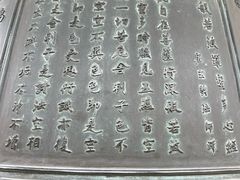 般若波羅蜜多心經
自在菩薩行深般若波
蜜多時照見五蘊皆空
一切苦厄舍利子色不
空空不異色色即是空
即是色受想行識亦復
是舍利子是諸法空相
不滅不垢不淨不增